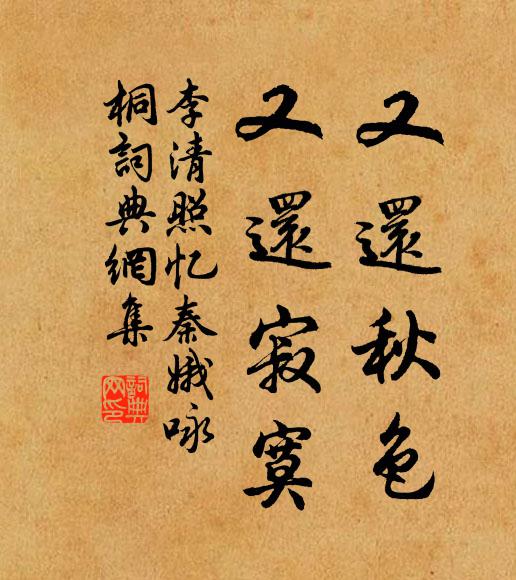 又還秋色
又還寂寞
李清照忆秦娥咏
桐詞典網集
詞典
网印